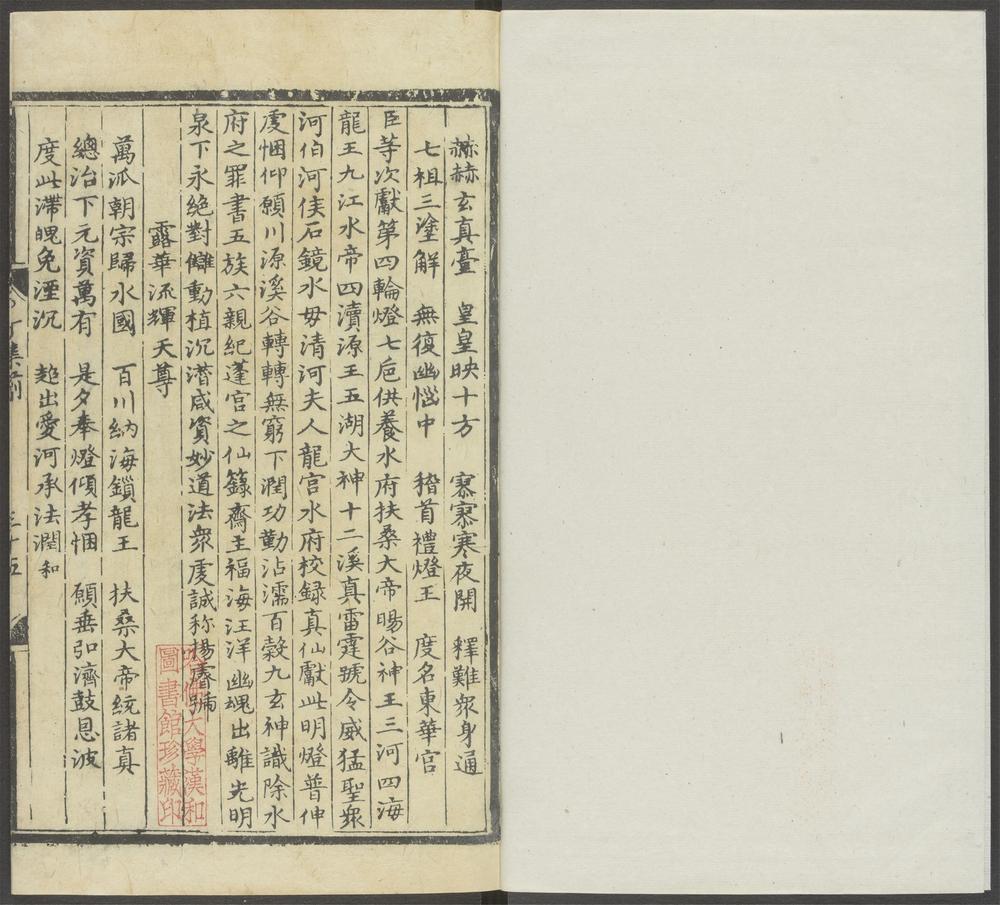 赫赫玄真臺　皇皇映十方　寥寥寒夜開　釋難眾身通
七祖三塗解　無復幽惱中　稽首禮燈王　度名東華宮
臣等次獻第四輪燈七卮供養水府扶桑大帝暘谷神王三河四海
龍王九江水帝四瀆源王五湖大神十二溪真雷霆號令威猛聖眾
河伯河侯石鏡水母清河夫人龍宮水府校録真仙獻此明燈普伸
虔悃仰願川源溪谷轉轉無窮下潤功勤沾濡百穀九玄神識除水
府之罪書五族六親紀蓬宮之仙籙齋主福海汪洋幽魂出離光明
泉下永絕對讎動植沉潛咸資妙道法眾虔誠称揚睿號
露華流輝天尊
萬派朝宗歸水國　百川納海鎖龍王　扶桑大帝統諸真
總治下元資萬有　是夕奉燈傾孝悃　願垂弘濟鼓恩波
度此滯魄免湮沉　超出愛河承法潤和
三十五
大學漢和
圖書館珍藏印